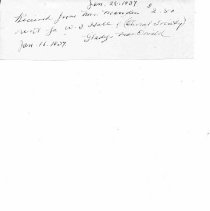 Jan. 26. 1937 $
Received from Mrs. 2.50
rent for W. I. Hall (Choral Society)
Gladys MacDonald
Jan. 16. 1937.